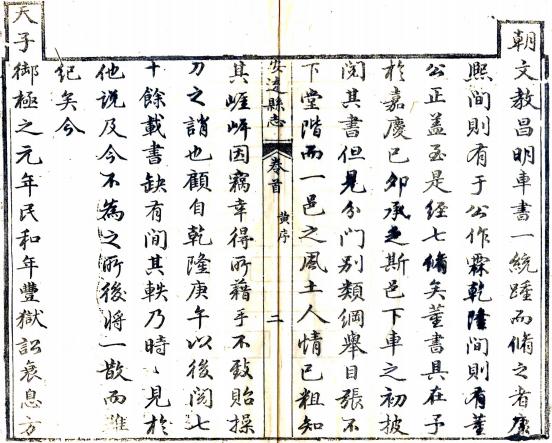 朝文教昌明車書一統踵而脩之者康
熙間則有于公作霖乾隆間則有董
公正盖至是經七脩矣董書具在予
於嘉慶己卯承乏斯邑下車之初披
閱其書但見分門別類綱舉目張不
下堂階而一邑之風土人情已粗知
安遠縣志
卷首
黄序
二
其崕崊因竊幸得所藉手不致貽操
刀之誚也顧自乾隆庚午以後閱七
十餘載書缺有間其軼乃時、見於
他說及今不為之所後將一散而難
紀矣今
天子御極之元年民和年豐獄訟衰息方